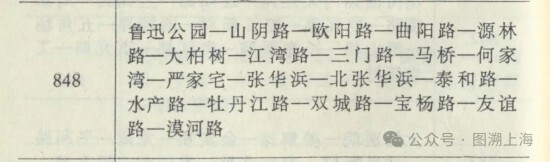 鲁迅公园—山阴路—欧阳路—曲阳路—源林
路—大柏树—江湾路—三门路—马桥—何家
848
湾—严家宅—张华浜—北张华浜—泰和路—
水产路—牡丹江路—双城路—宝杨路—友谊
路—漠河路
公众号·图溯上海